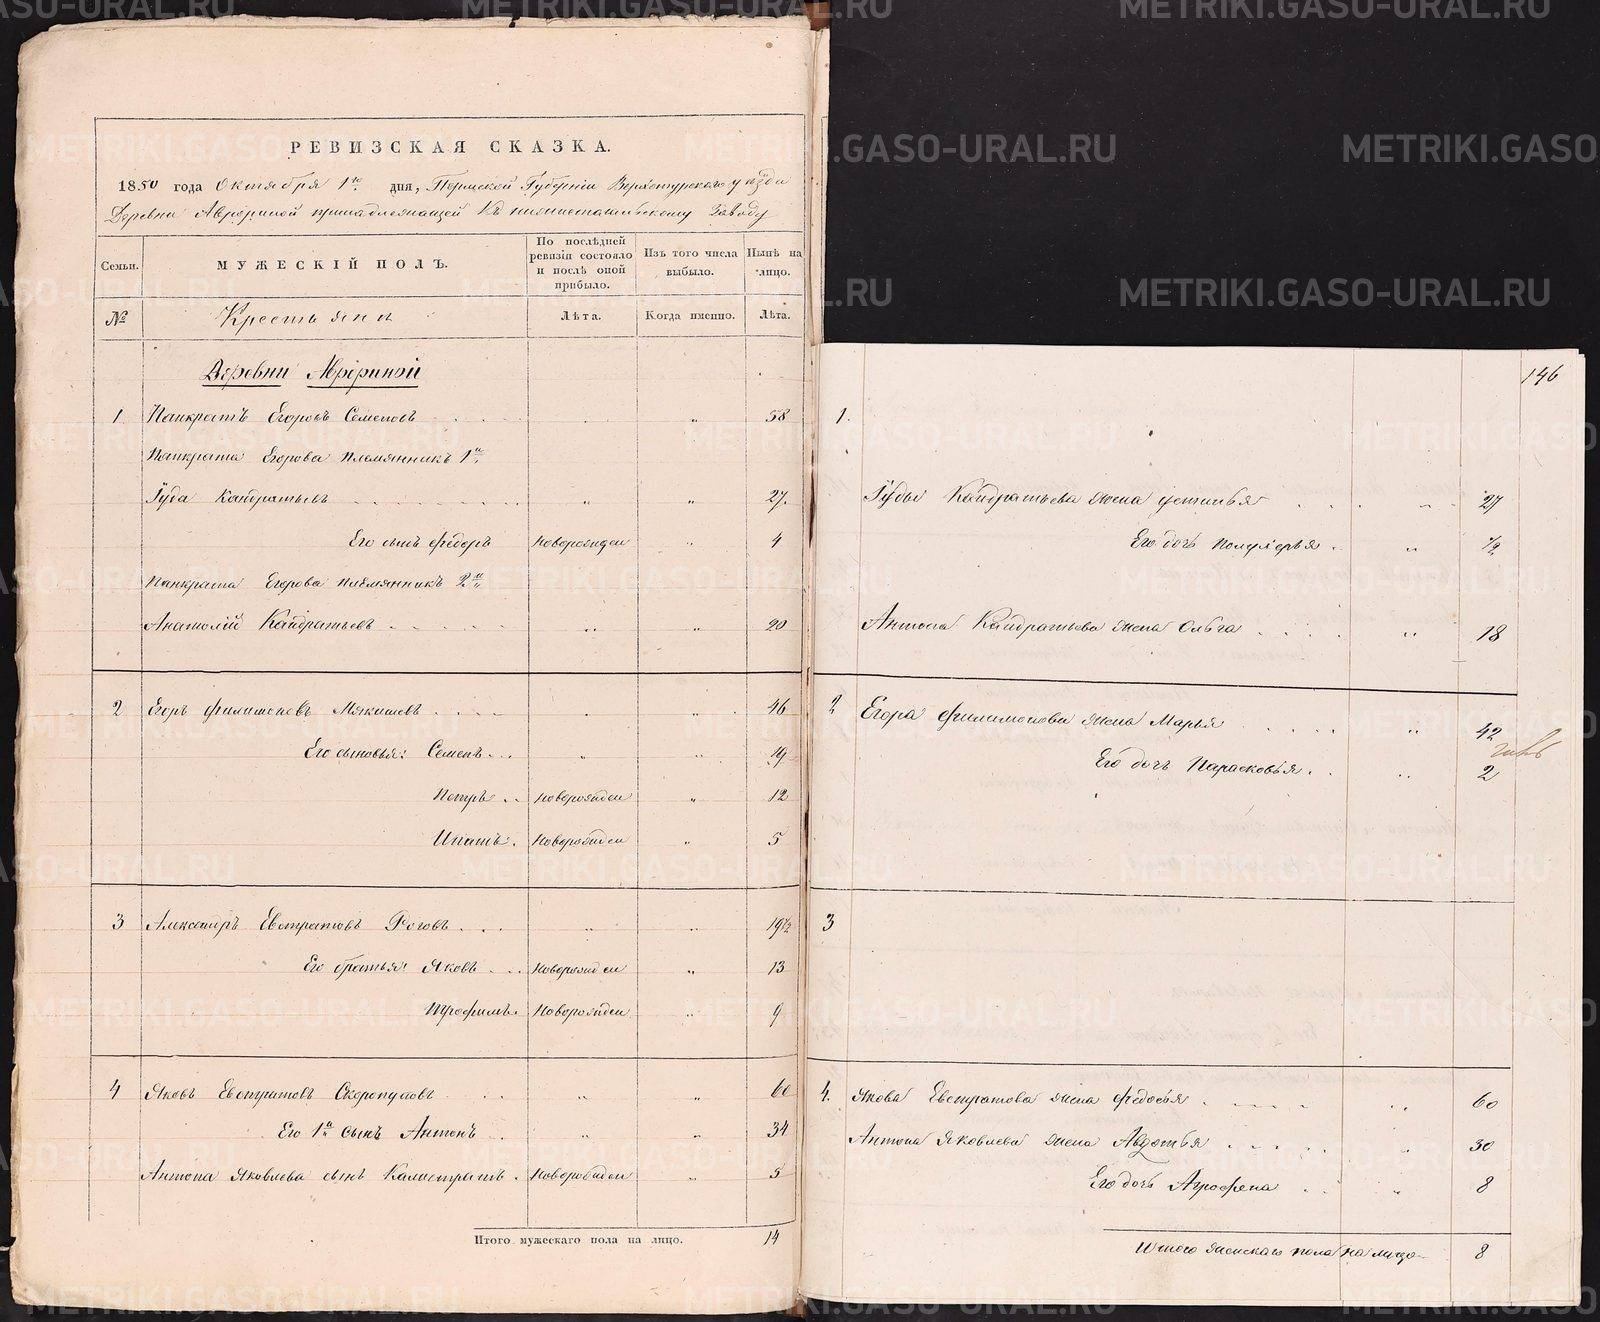 РЕВИЗСКАЯ СКАЗКА.
1850 года Октября 1го дня, Пермской Губерніи Верхотурскаго уѣзда
Деревни Аврориной принадлежащей къ нижнетагильскому заводу
Семьи.
МУЖЕСКІЙ ПОЛЪ.
По послѣдней ревизіи состояло и послѣ оной прибыло.
Изъ того числа выбыло.
Нынѣ на лицо.
№
Крестьяне
Лѣта.
Когда именно.
Лѣта.
Деревни Аврориной
1 Панкратъ Егоровъ Семеновъ 58
Панкрата Егорова племянникъ 1й
Гуда Кандратьевъ 27.
Его сынъ Федоръ Новорожден 4
Панкрата Егорова племянникъ 2й
Анатолій Кандратьевъ 20
2 Егоръ Филимоновъ Мякишевъ 46
Его сыновья: Семенъ 19
Петръ Новорожден 12
Ипатъ. Новорожден 5
3 Александръ Евстратовъ Роговъ 19 1/2
Его братья: Яковъ Новорожден 13
Трофимъ. Новорожден 9
4 Яковъ Евстратовъ Скоропуповъ 60
Его 1й сынъ Антонъ 34
Антона Яковлева сынъ Калистратъ. Новорожден 5
Итого мужескаго пола на лицо. 14
146
1.
Гуды Кандратьева жена Фетинья 27
Его дочь Полуферья 1/2
Антона Кандратьева жена Ольга 18
2 Егора Филимонова жена Марья 42
Его дочь Парасковья 2
3
4. Якова Евстратова жена Федосья 60
Антона Яковлева жена Авдотья 30
Его дочь Агрофена 8
Итого женскаго пола на лицо 8
METRIKI.GASO-URAL.RU